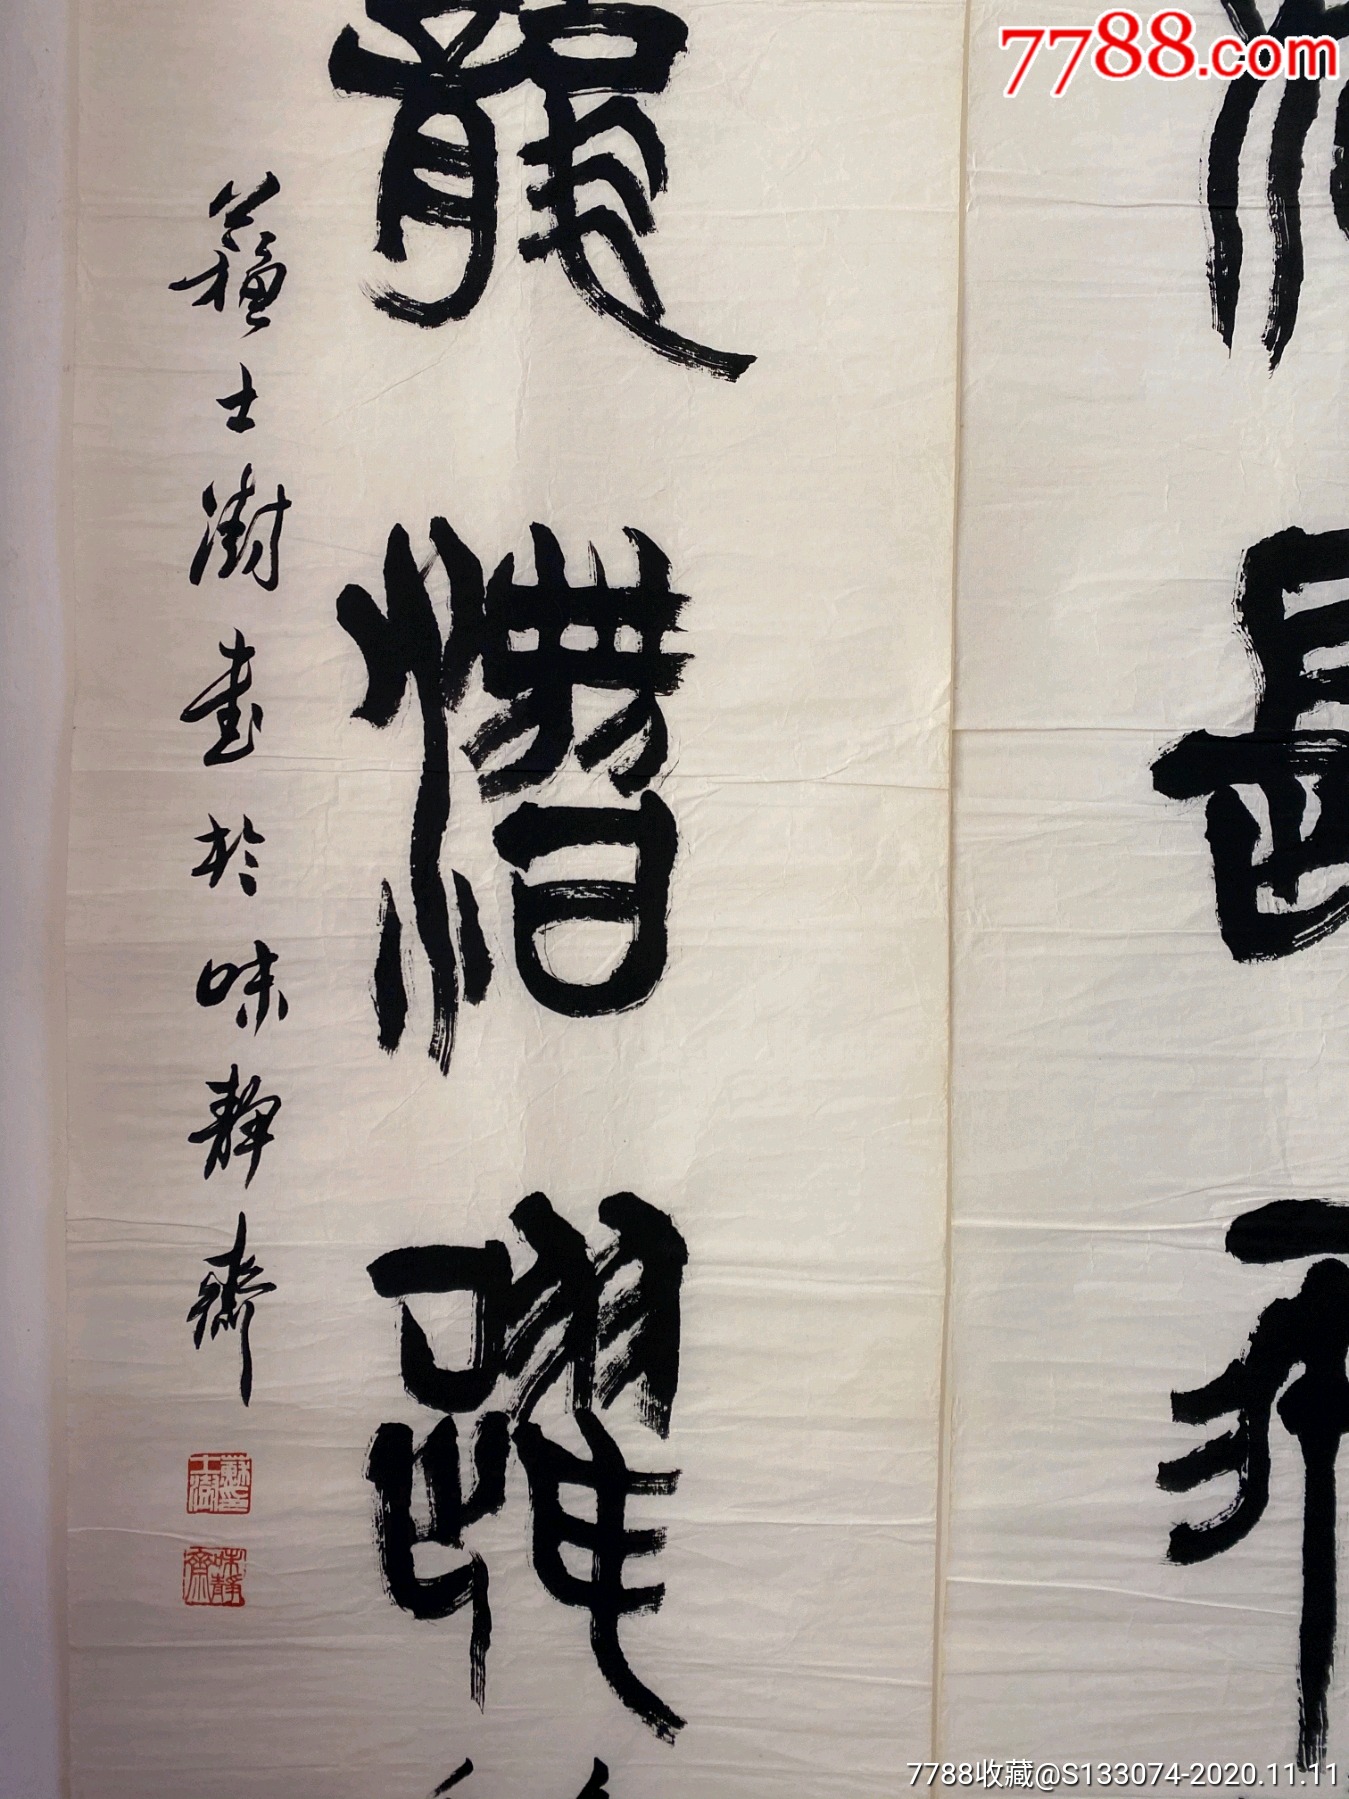 7788.com
長
不
龍
潛
躍
蘇士澍書於味靜齋
蘇士澍印
味靜齋
7788收藏@S133074-2020.11.11